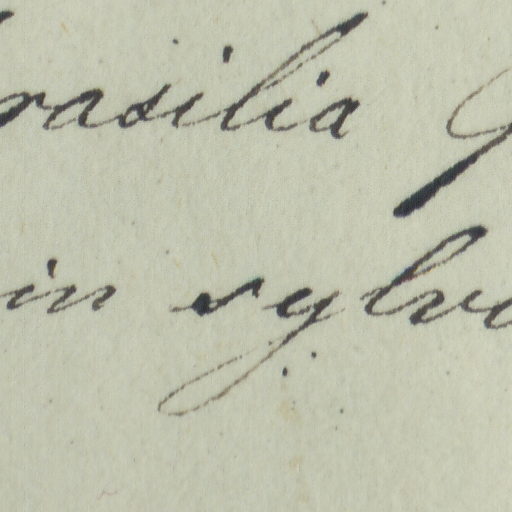 rasilia
in sylv